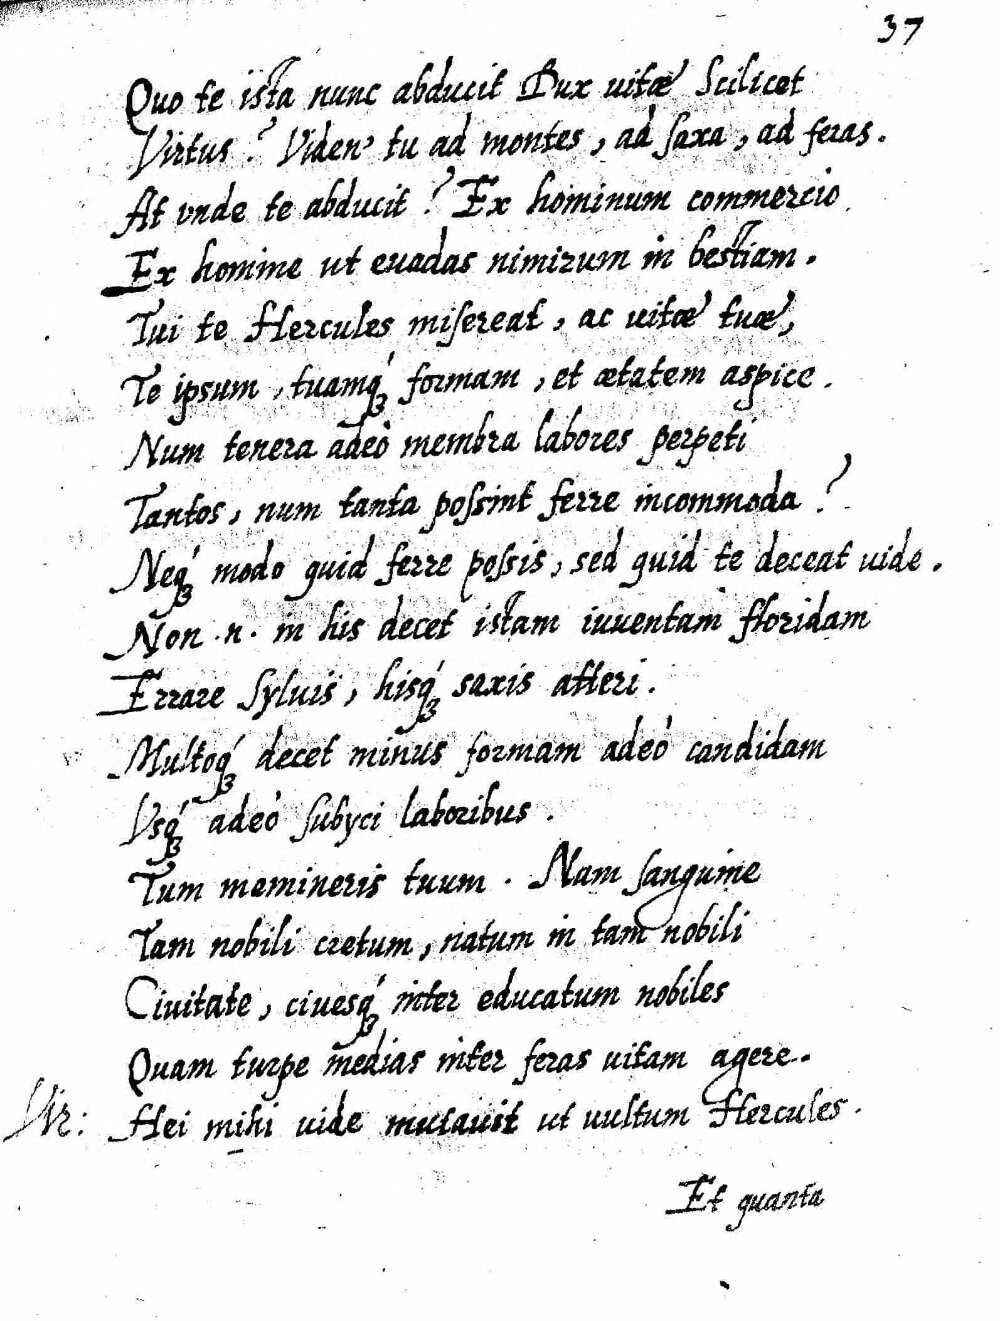 37
Quo te ista nunc abducit Dux uitæ Scilicet
Virtus? Viden' tu ad montes, ad saxa, ad feras.
At vnde te abducit? Ex hominum commercio.
Ex homine ut euadas nimirum in bestiam.
Tui te Hercules misereat, ac uitæ tuæ,
Te ipsum, tuamq́ꝫ formam, et ætatem aspice.
Num tenera adeò membra labores perpeti
Tantos, num tanta possint ferre incommoda?
Neq́ꝫ modo quid ferre possis, sed quid te deceat uide.
Non .n. in his decet istam iuuentam floridam
Errare Syluis, hisq́ꝫ saxis atteri.
Multoq́ꝫ decet minus formam adeò candidam
Vsq́ꝫ adeò subyci laboribus.
Tum memineris tuum. Nam sanguine
Tam nobili cretum, natum in tam nobili
Ciuitate, ciuesq́ꝫ inter educatum nobiles
Quam turpe medias inter feras uitam agere.
Vir: Hei mihi uide mutauit ut uultum Hercules.
Et quanta